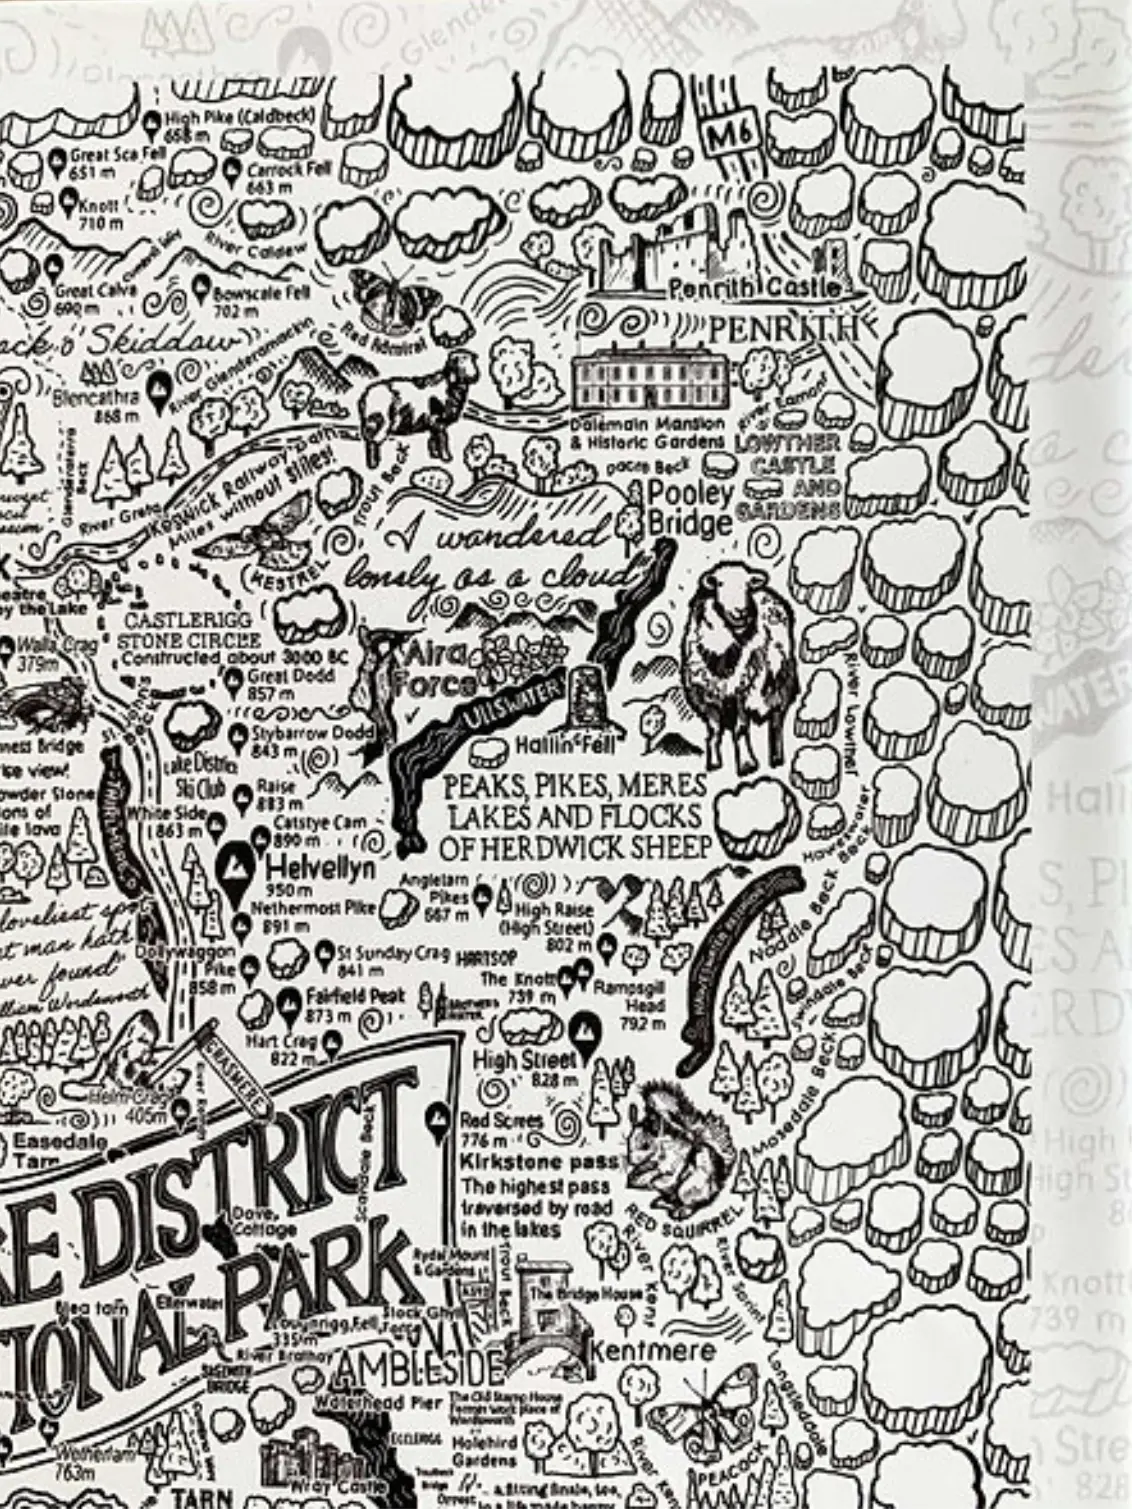 High Pike (Caldbeck)
658 m
M6
Great Sca Fell
651 m
Carrock Fell
663 m
Knott
710 m
River Caldew
Great Calva
690 m
Bowscale Fell
702 m
Penrith Castle
PENRITH
Skiddaw
River Glenderamackin
Red Admiral
Blencathra
868 m
Dalemain Mansion
& Historic Gardens
River Eamont
LOWTHER
CASTLE
AND
GARDENS
Dacre Beck
Pooley
Bridge
Keswick Railway Path
Miles without stiles!
River Greta
Glenderaterra
Beck
Trout Beck
I wandered
lonely as a cloud
KESTREL
by the Lake
CASTLERIGG
STONE CIRCLE
Constructed about 3000 BC
Walla Crag
379m
Great Dodd
857 m
Aira
Force
ULLSWATER
Hallin Fell
Stybarrow Dodd
843 m
Lake District
Ski Club
Raise
883 m
White Side
863 m
Catstye Cam
890 m
Helvellyn
950 m
Nethermost Pike
891 m
PEAKS, PIKES, MERES
LAKES AND FLOCKS
OF HERDWICK SHEEP
River Lowther
Haweswater
Beck
Angletarn
Pikes
567 m
High Raise
(High Street)
802 m
Naddle Beck
loveliest spot
man hath
found"
William Wordsworth
Dollywaggon
Pike
858 m
St Sunday Crag
841 m
HARTSOP
The Knott
739 m
Rampsgill
Head
792 m
Swindale Beck
Fairfield Peak
873 m
BROTHERS
WATER
Hart Crag
822 m
High Street
828 m
Mosedale Beck
GRASMERE
Helm Crag
405m
Easedale
Tarn
Red Screes
776 m
Kirkstone pass
The highest pass
traversed by road
in the lakes
RED SQUIRREL
DISTRICT
PARK
Scandale Beck
Dove
Cottage
Rydal Mount
& Gardens
A591
Trout Beck
The Bridge House
River Kent
River Sprint
Blea tarn
Elterwater
Stock Ghyll
Force
Loughrigg Fell
335m
River Brathay
AMBLESIDE
Kentmere
Longsleddale
Waterhead Pier
The Old Stamp House
Former work place of
Wordsworth
Holehird
Gardens
Wetherlam
763m
Wray Castle
PEACOCK
TARN